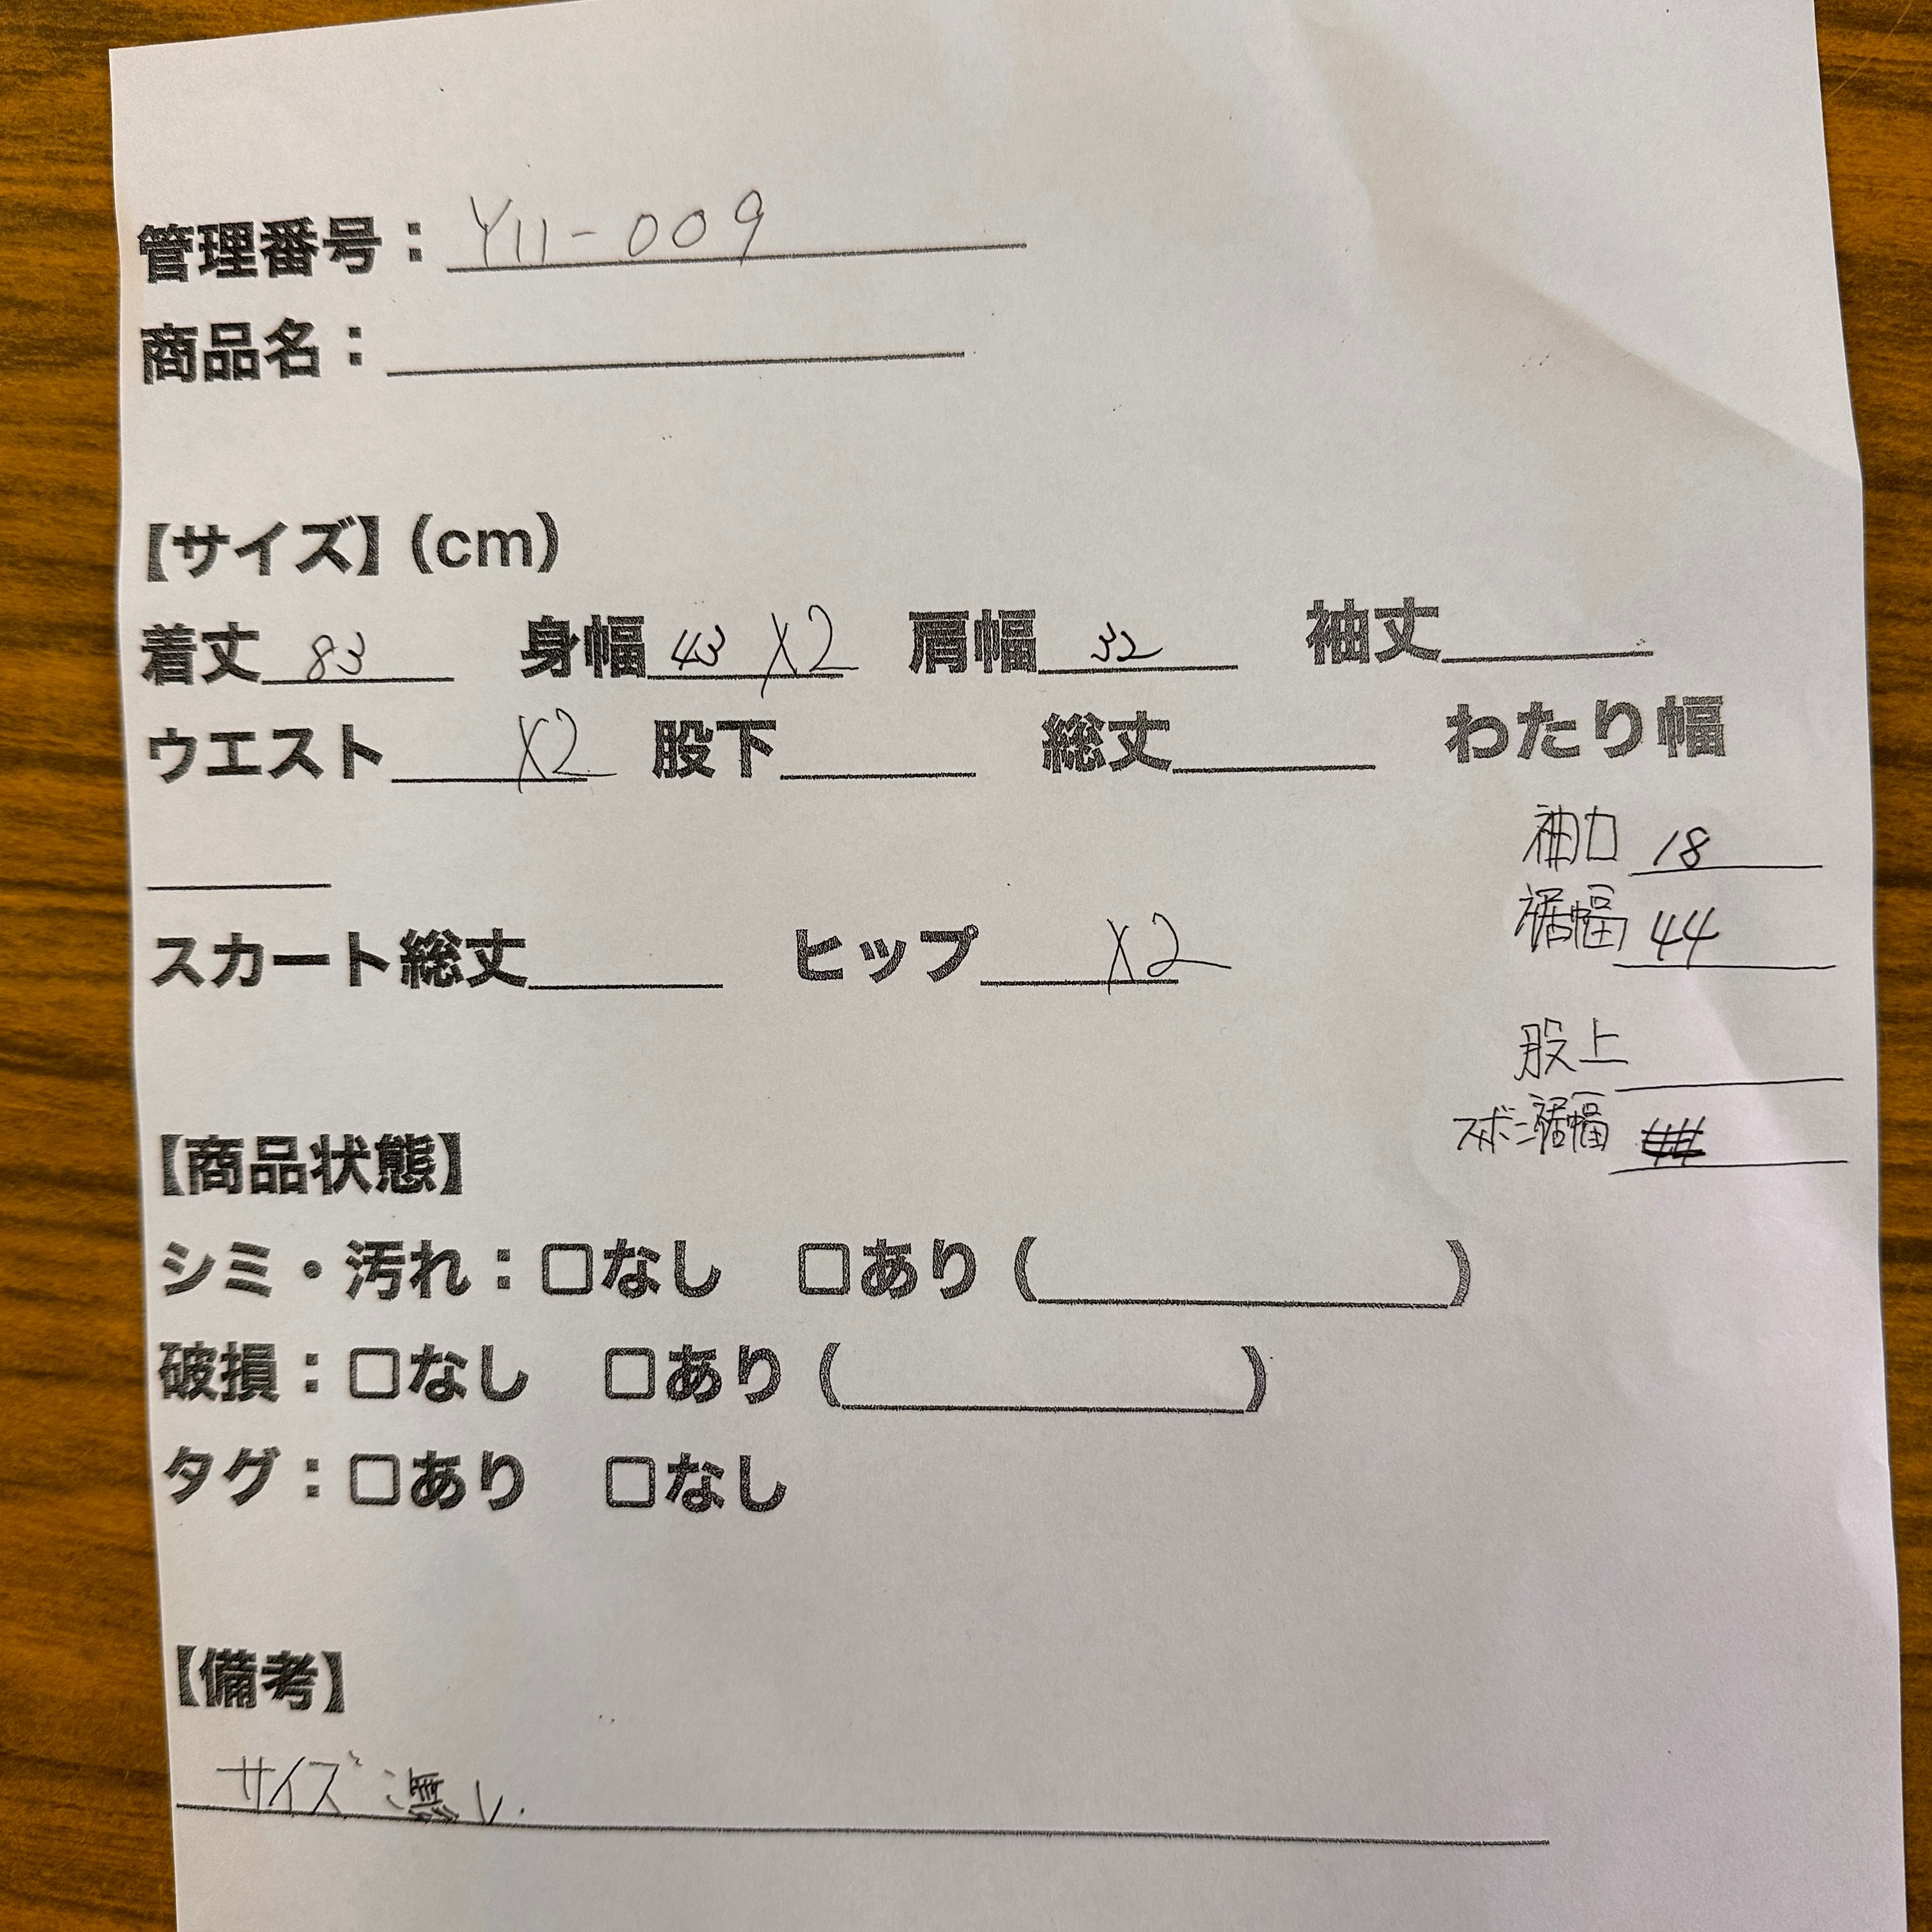 管理番号：Y11-009
商品名：
【サイズ】（cm）
着丈 83 身幅 43 X2 肩幅 32 袖丈
ウエスト X2 股下 総丈 わたり幅
袖口 18
裾幅 44
スカート総丈 ヒップ X2
股上
ズボン裾幅
【商品状態】
シミ・汚れ：□なし □あり（ ）
破損：□なし □あり（ ）
タグ：□あり □なし
【備考】
サイズ 無し.